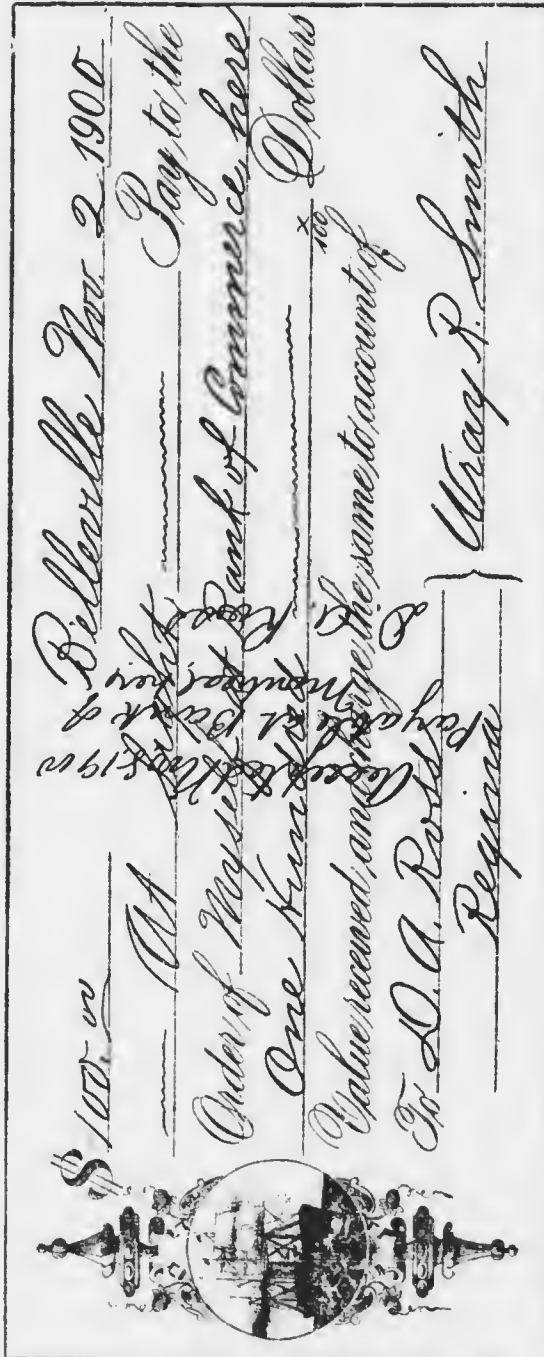 $100.00 Belleville Nov. 2 1900
At Sight Pay to the
Order of Myself Bank of Commerce here
One Hundred x/100 Dollars
Value received, and charge the same to account of
To D. A. Ross } Wray R. Smith
Regina
Accepted Nov 8, 1900
Payable at Bank of
Montreal, here
D. A. Ross